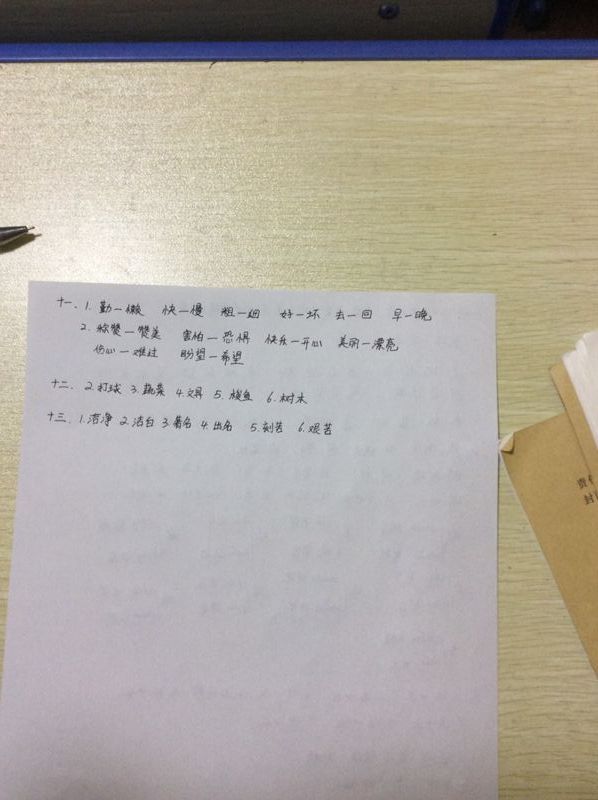 十一、1. 勤—懒 快—慢 粗—细 好—坏 去—回 早—晚
2. 称赞—赞美 害怕—恐惧 快乐—开心 美丽—漂亮
伤心—难过 盼望—希望
十二、2.打球 3.蔬菜 4.文具 5. 鱼 6.树木
十三、1.洁净 2.洁白 3.著名 4.出名 5.刻苦 6.艰苦
责
封